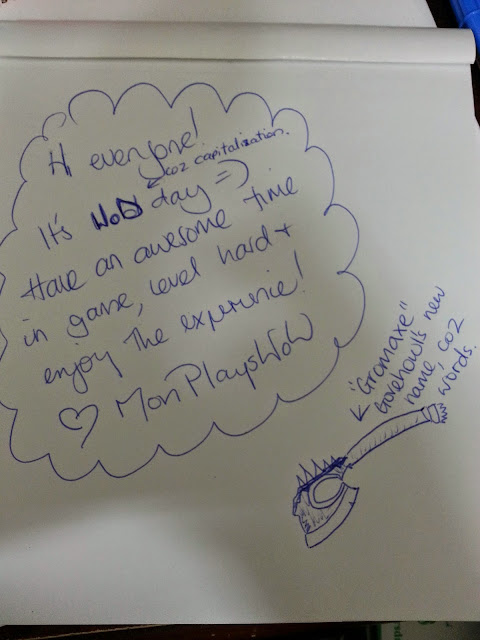 Hi everyone!
coz capitalization.
It's WoD day =)
Have an awesome time
in game, level hard +
enjoy the experience!
♡ MonPlaysWoW
"Gromaxe"
Gorehowl's new
name, coz
words.